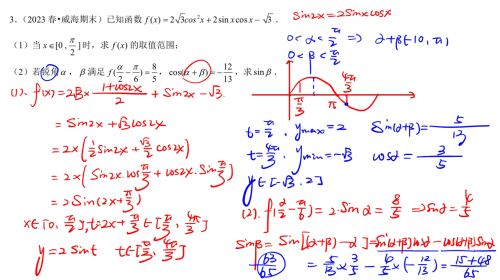 3.（2023 春•威海期末）已知函数 f(x)=2√3cos²x+2sin xcos x-√3 .
（1）当 x∈[0 , π/2] 时，求 f(x) 的取值范围；
（2）若锐角 α ， β 满足 f(α/2-π/6)=8/5 ， cos(α+β)=-12/13 ，求 sin β .
(1)、f(x)=2√3 × (1+cos2x)/2 + sin2x-√3.
= sin2x+√3cos2x
= 2×(1/2 sin2x+√3/2 cos2x)
= 2×(sin2x.cosπ/3+cos2x.sinπ/3)
= 2sin(2x+π/3)
x∈[0, π/2], t=2x+π/3∈[π/3, 4π/3]
y=2sint t∈[π/3, 4π/3]
sin2x=2sinxcosx
0<α<π/2 => α+β∈(0,π)
0<β<π/2
π/3 π 4π/3
t=π/2 . ymax=2
t=4π/3, ymin=-√3
y∈[-√3 . 2]
sin(α+β)=5/13
cosα=3/5
(2). f(α/2-π/6)=2.sinα=8/5 => sinα=4/5
sinβ=sin[(α+β)-α]=sin(α+β)cosα-cos(α+β)sinα
=5/13×3/5-4/5×(-12/13)=(15+48)/65
=63/65